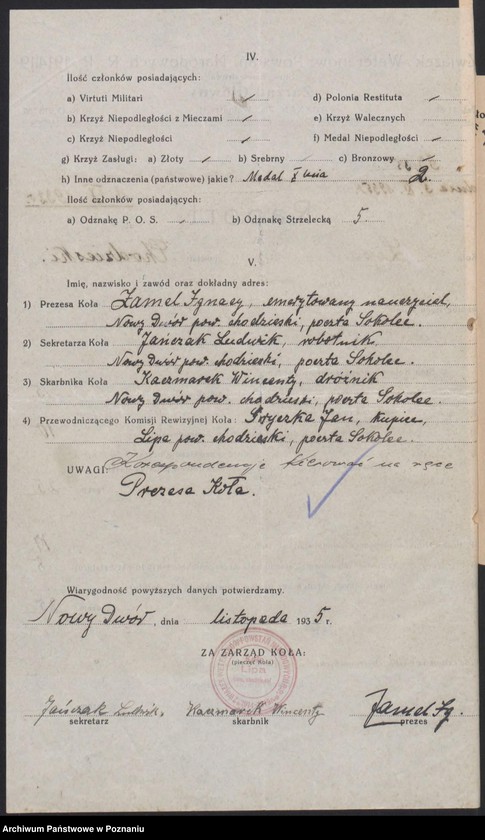 IV.
Ilość członków posiadających:
a) Virtuti Militari d) Polonia Restituta
b) Krzyż Niepodległości z Mieczami e) Krzyż Walecznych
c) Krzyż Niepodległości f) Medal Niepodległości
g) Krzyż Zasługi: a) Złoty b) Srebrny c) Bronzowy
h) Inne odznaczenia (państwowe) jakie? Medal X lecia 2.
Ilość członków posiadających:
a) Odznakę P. O. S. b) Odznakę Strzelecką 5.
V.
Imię, nazwisko i zawód oraz dokładny adres:
1) Prezesa Koła Zamel Ignacy, emerytowany nauczyciel,
Nowy Dwór pow. chodzieski, poczta Sokolec.
2) Sekretarza Koła Jańczak Ludwik, robotnik
Nowy Dwór pow. chodzieski, poczta Sokolec.
3) Skarbnika Koła Kaczmarek Wincenty, dróżnik
Nowy Dwór pow. chodzieski, poczta Sokolec.
4) Przewodniczącego Komisji Rewizyjnej Koła: Jan, kupiec,
Lipa pow. chodzieski, poczta Sokolec.
UWAGI: Korespondencję kierować na ręce
Prezesa Koła.
Wiarygodność powyższych danych potwierdzamy.
Nowy Dwór, dnia listopada 1935 r.
ZA ZARZĄD KOŁA:
(pieczęć Koła)
Lipa
Jańczak Ludwik, Kaczmarek Wincenty Zamel Ig.
sekretarz skarbnik prezes
Archiwum Państwowe w Poznaniu